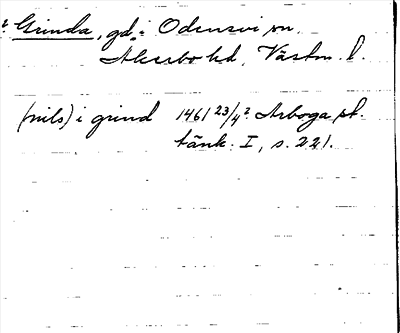 ? Grinda, gd. i Odensvi sn,
Åkerbo hd, Västm. l.
(nils) i grind 1461 23/4 ? Arboga st.
tänk. I, s. 221.